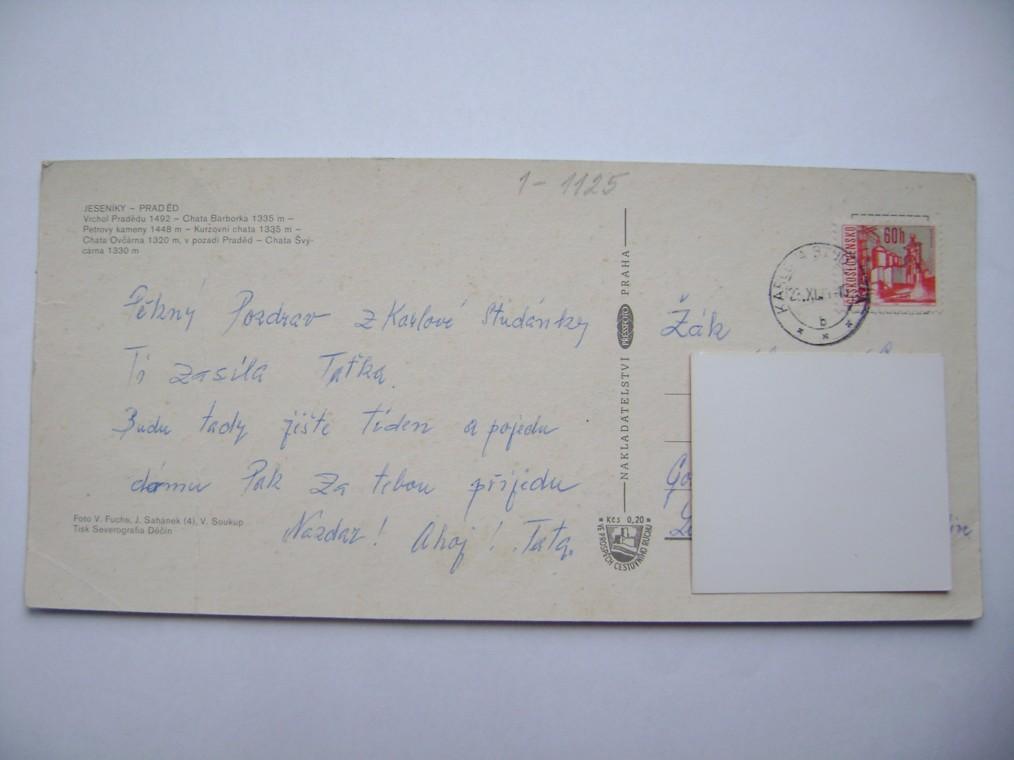 1-1125
JESENÍKY – PRADĚD
Vrchol Pradědu 1492 – Chata Barborka 1335 m –
Petrovy kameny 1448 m – Kurzovní chata 1335 m –
Chata Ovčárna 1320 m, v pozadí Praděd – Chata Švý-
cárna 1330 m
Pěkný Pozdrav z Karlové Studánky
Ti zasíla Taťka.
Budu tady jěště tíden a pojedu
domu Pak za tebou přijedu
Nazdar! Ahoj! Tata.
Foto V. Fuchs, J. Sahánek (4), V. Soukup
Tisk Severografia Děčín
NAKLADATELSTVÍ PRESSFOTO PRAHA
Kčs 0,20
VE PROSPĚCH CESTOVNÍHO RUCHU
Žák
60h
ČESKOSLOVENSKO
b